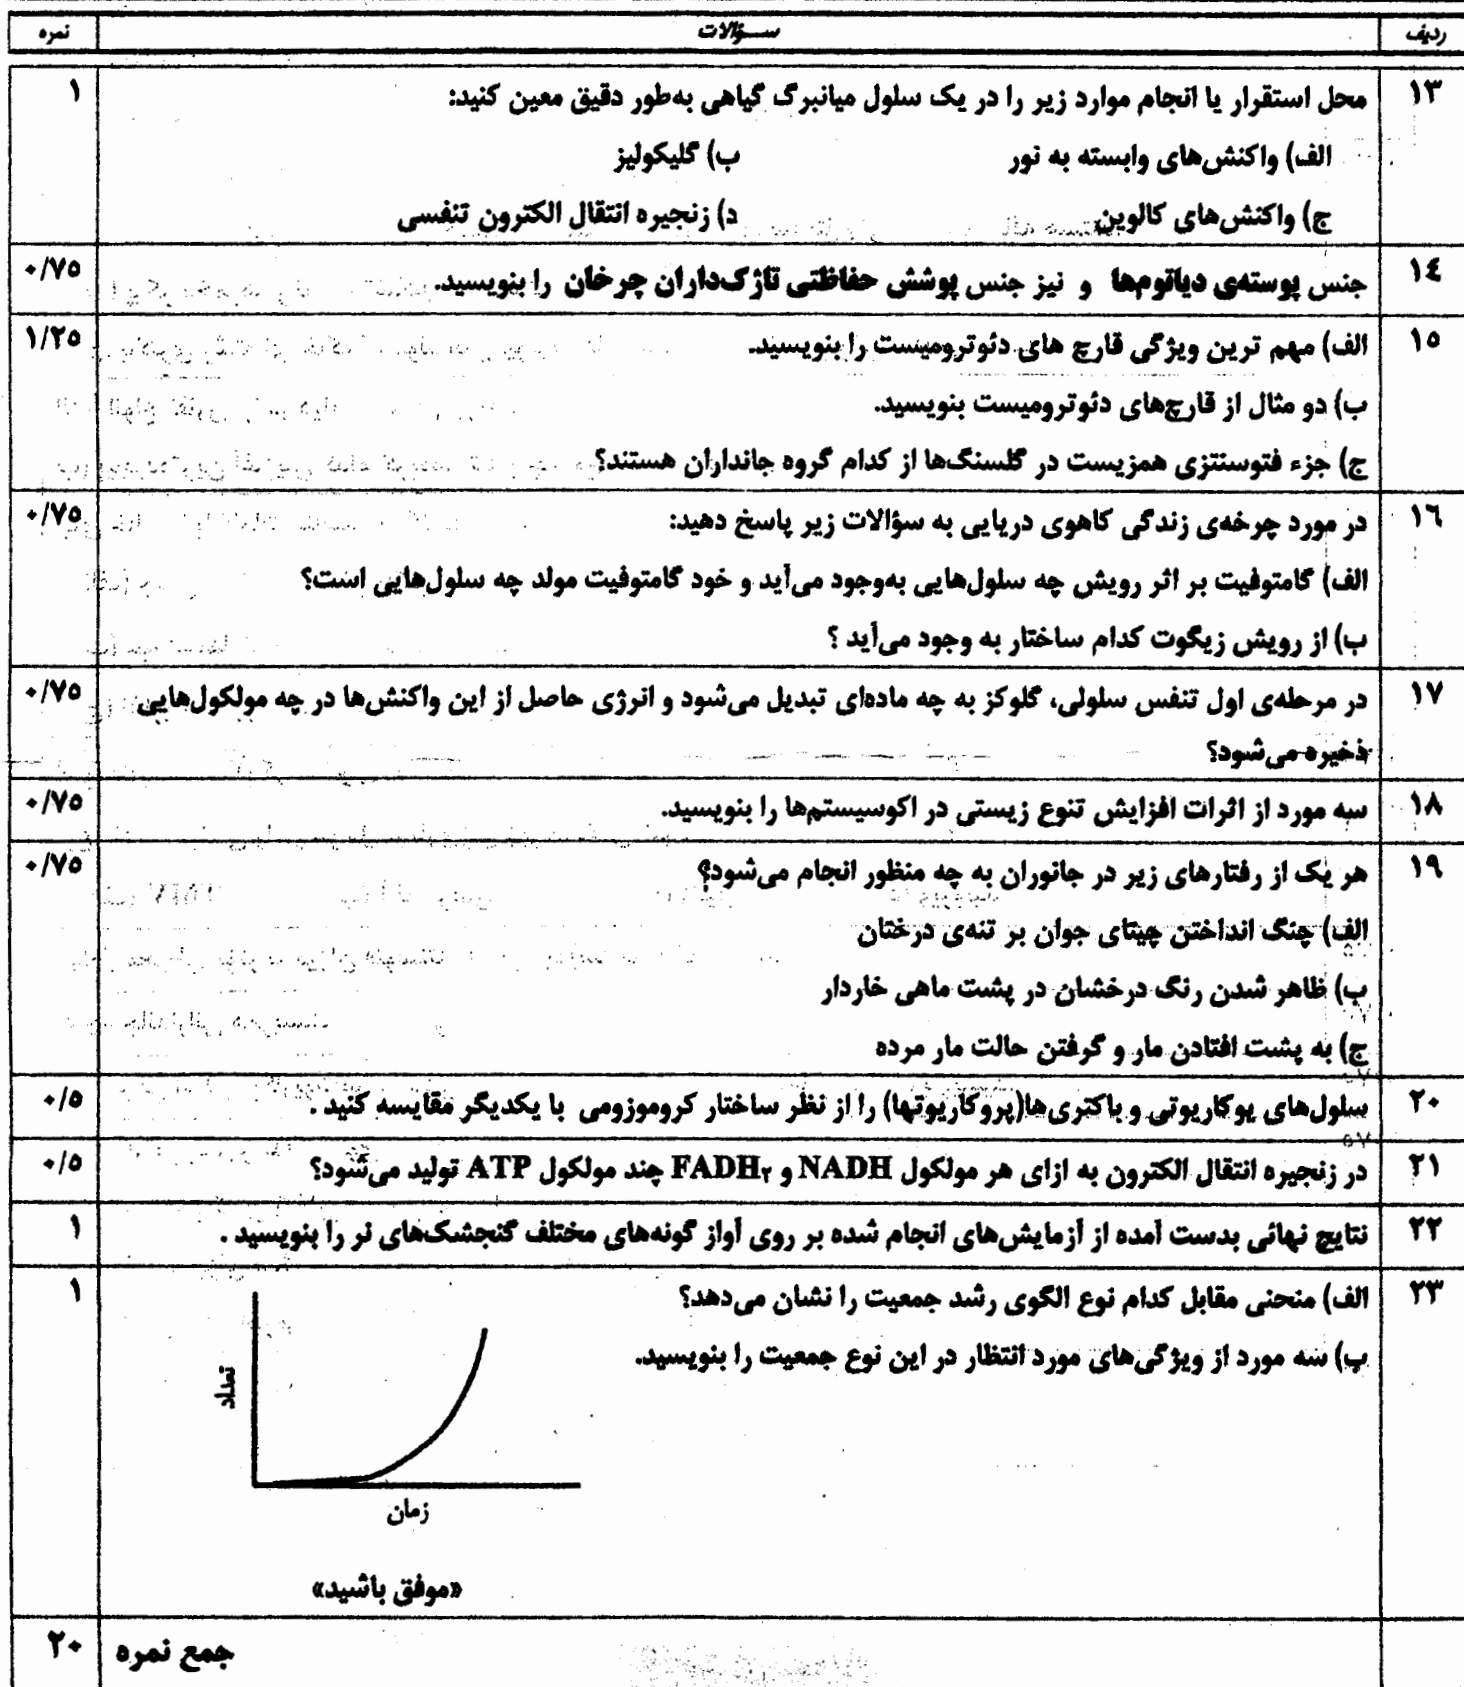 ردیف سـؤالات نمره
۱۳ محل استقرار یا انجام موارد زیر را در یک سلول میانبرگ گیاهی به‌طور دقیق معین کنید: ۱
الف) واکنش‌های وابسته به نور ب) گلیکولیز
ج) واکنش‌های کالوین د) زنجیره انتقال الکترون تنفسی
۱۴ جنس پوسته‌ی دیاتوم‌ها و نیز جنس پوشش حفاظتی تاژک‌داران چرخان را بنویسید. ۰/۷۵
۱۵ الف) مهم ترین ویژگی قارچ های دئوترومیست را بنویسید. ۱/۲۵
ب) دو مثال از قارچ‌های دئوترومیست بنویسید.
ج) جزء فتوسنتزی همزیست در گلسنگ‌ها از کدام گروه جانداران هستند؟
۱۶ در مورد چرخه‌ی زندگی کاهوی دریایی به سؤالات زیر پاسخ دهید: ۰/۷۵
الف) گامتوفیت بر اثر رویش چه سلول‌هایی به‌وجود می‌آید و خود گامتوفیت مولد چه سلول‌هایی است؟
ب) از رویش زیگوت کدام ساختار به وجود می‌آید ؟
۱۷ در مرحله‌ی اول تنفس سلولی، گلوکز به چه ماده‌ای تبدیل می‌شود و انرژی حاصل از این واکنش‌ها در چه مولکول‌هایی ۰/۷۵
ذخیره می‌شود؟
۱۸ سه مورد از اثرات افزایش تنوع زیستی در اکوسیستم‌ها را بنویسید. ۰/۷۵
۱۹ هر یک از رفتارهای زیر در جانوران به چه منظور انجام می‌شود؟ ۰/۷۵
الف) چنگ انداختن چیتای جوان بر تنه‌ی درختان
ب) ظاهر شدن رنگ درخشان در پشت ماهی خاردار
ج) به پشت افتادن مار و گرفتن حالت مار مرده
۲۰ سلول‌های یوکاریوتی و باکتری‌ها(پروکاریوتها) را از نظر ساختار کروموزومی با یکدیگر مقایسه کنید . ۰/۵
۲۱ در زنجیره انتقال الکترون به ازای هر مولکول NADH و FADH۲ چند مولکول ATP تولید می‌شود؟ ۰/۵
۲۲ نتایج نهائی بدست آمده از آزمایش‌های انجام شده بر روی آواز گونه‌های مختلف گنجشک‌های نر را بنویسید . ۱
۲۳ الف) منحنی مقابل کدام نوع الگوی رشد جمعیت را نشان می‌دهد؟ ۱
ب) سه مورد از ویژگی‌های مورد انتظار در این نوع جمعیت را بنویسید.
تعداد
زمان
«موفق باشید»
جمع نمره ۲۰